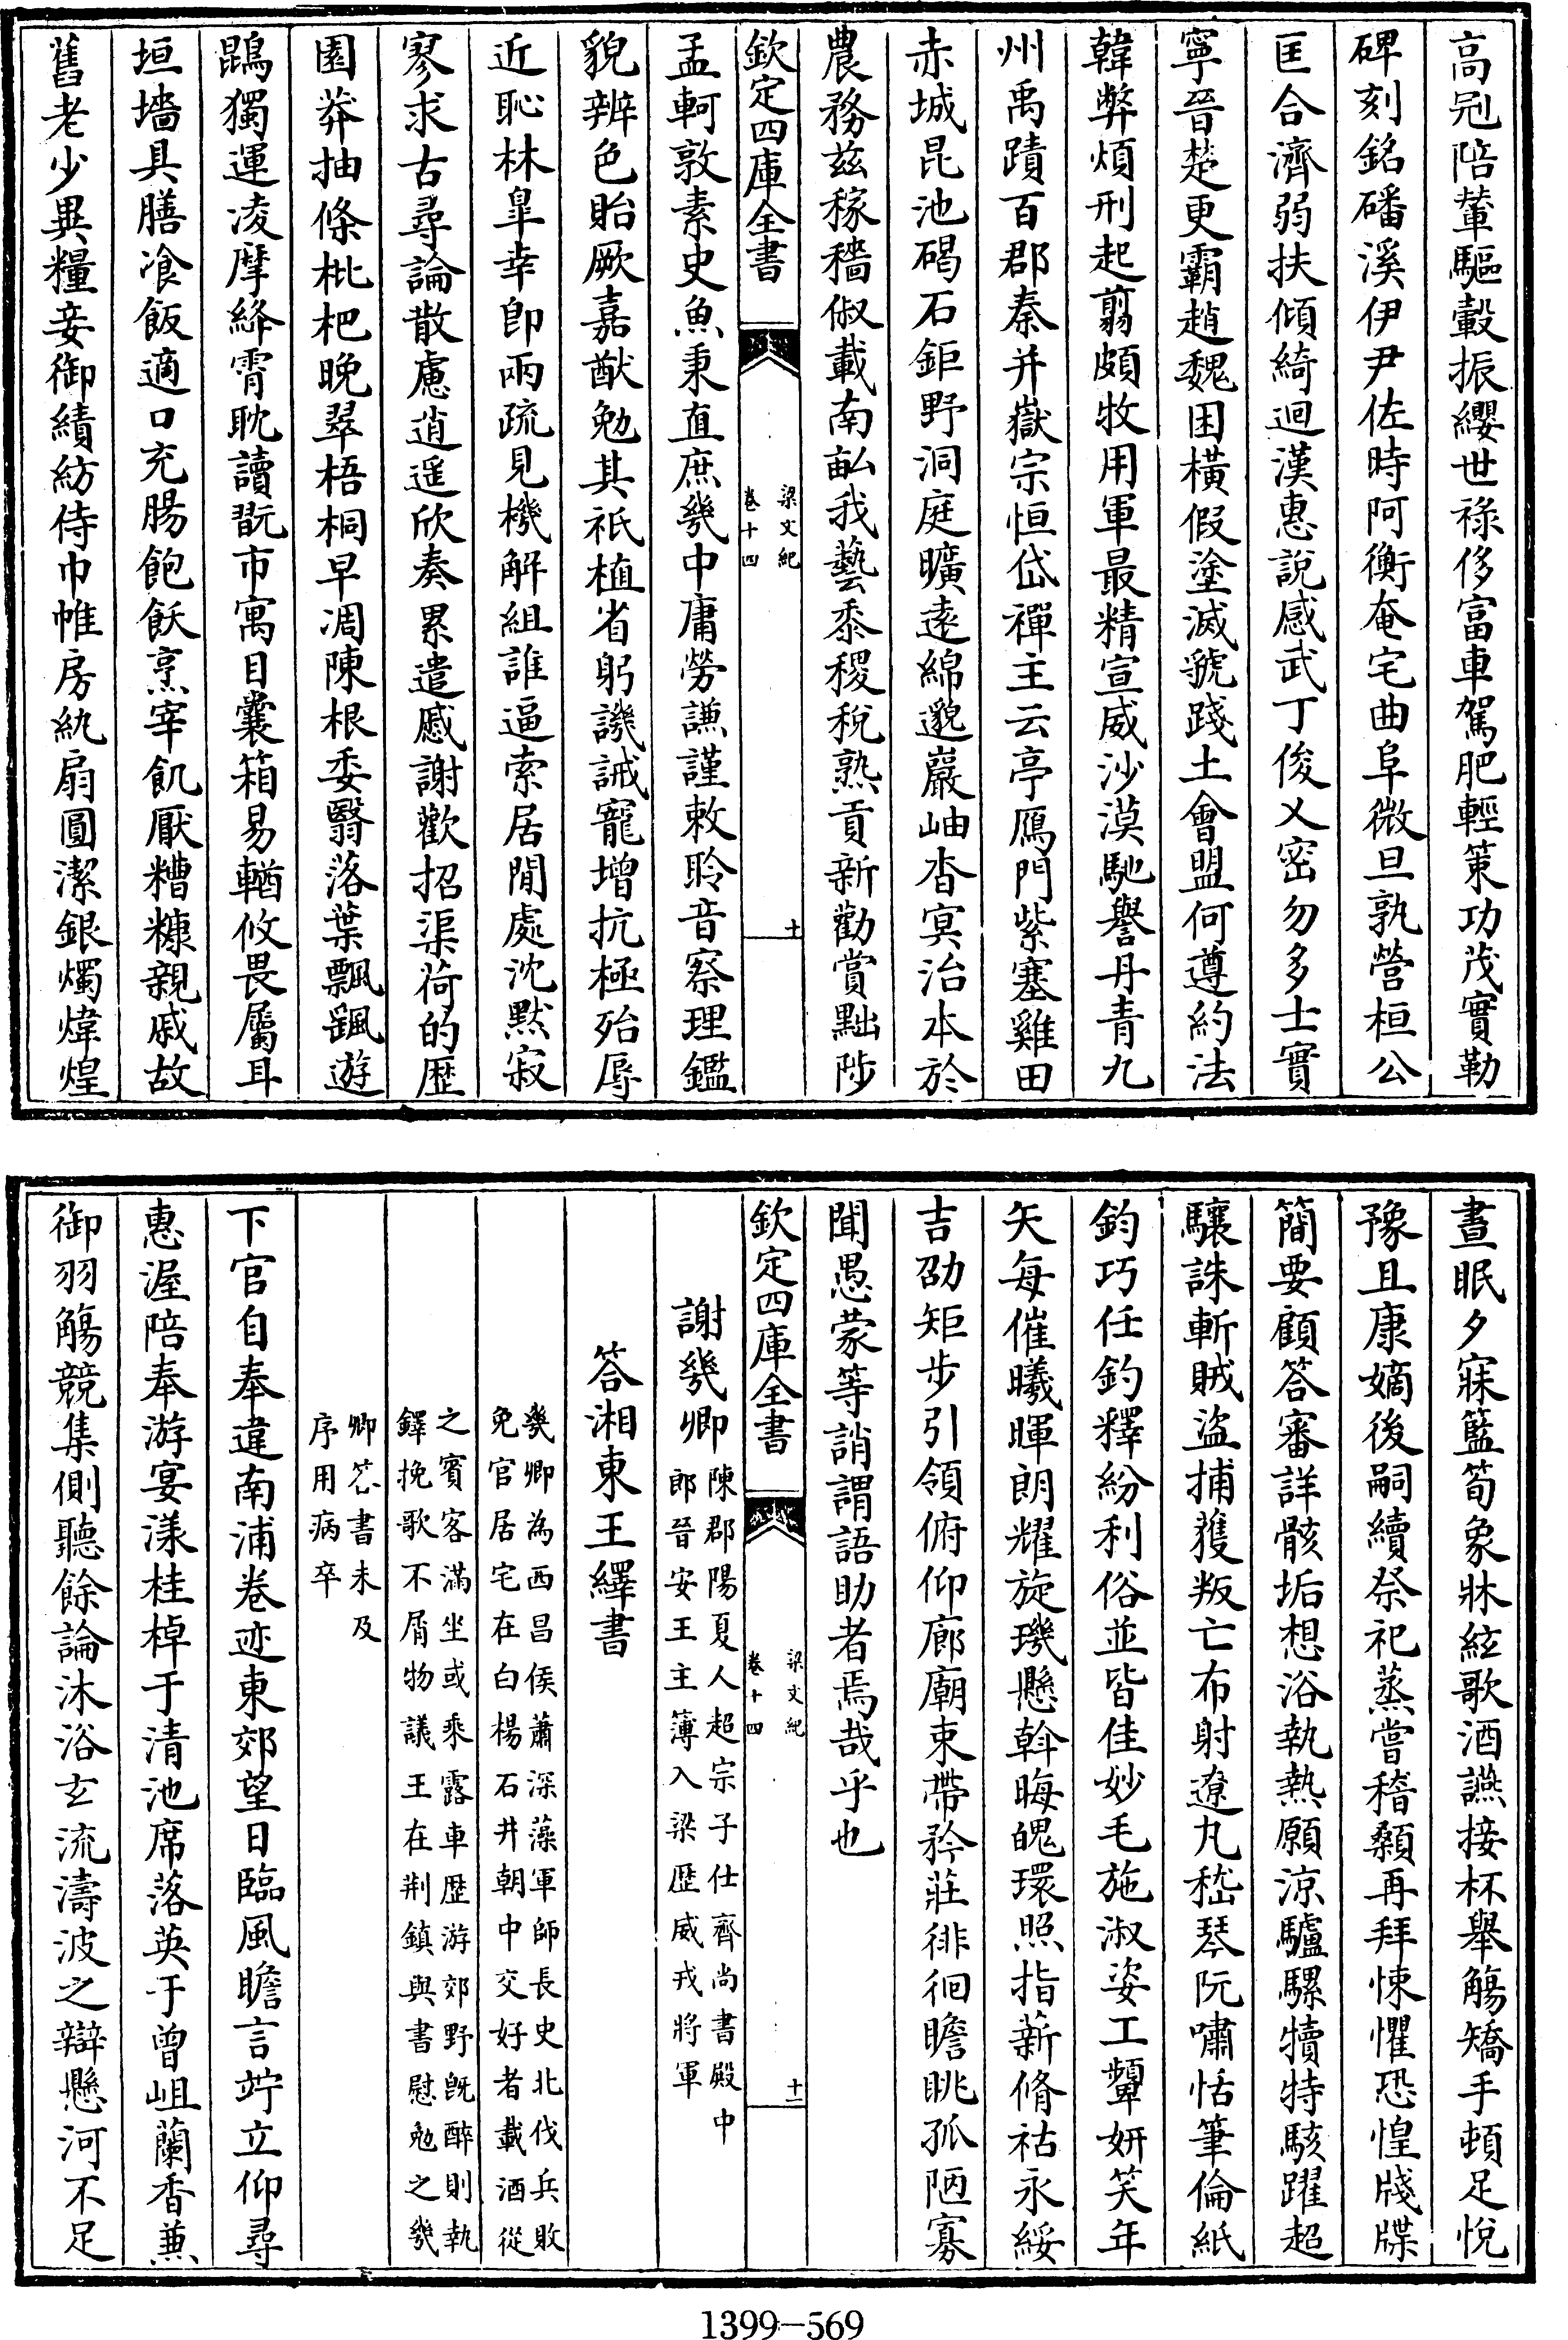 高冠陪輦驅轂振纓世祿侈富車駕肥輕策功茂實勒
碑刻銘磻溪伊尹佐時阿衡奄宅曲阜微旦孰營桓公
匡合濟弱扶傾綺迴漢惠說感武丁俊乂密勿多士實
寧晉楚更霸趙魏困橫假塗滅虢踐土會盟何遵約法
韓弊煩刑起翦頗牧用軍最精宣威沙漠馳譽丹青九
州禹蹟百郡秦并嶽宗恒岱禪主云亭鴈門紫塞雞田
赤城昆池碣石鉅野洞庭曠遠綿邈巖岫杳冥治本於
農務茲稼穡俶載南畝我藝黍稷稅熟貢新勸賞黜陟
欽定四庫全書
梁文紀
卷十四
十
孟軻敦素史魚秉直庶幾中庸勞謙謹敕聆音察理鑑
貌辨色貽厥嘉猷勉其祇植省躬譏誡寵增抗極殆辱
近恥林皐幸即兩疏見機解組誰逼索居閒處沈默寂
寥求古尋論散慮逍遥欣奏累遣慼謝歡招渠荷的歷
園莽抽條枇杷晚翠梧桐早凋陳根委翳落葉飄颻遊
鵾獨運凌摩絳霄耽讀翫市寓目囊箱易輶攸畏屬耳
垣墻具膳飡飯適口充腸飽飫烹宰飢厭糟糠親戚故
舊老少異糧妾御績紡侍巾帷房紈扇圓潔銀燭煒煌
晝眠夕寐籃筍象牀絃歌酒讌接杯舉觴矯手頓足悅
豫且康嫡後嗣續祭祀蒸嘗稽顙再拜悚懼恐惶牋牒
簡要顧答審詳骸垢想浴執熱願涼驢騾犢特駭躍超
驤誅斬賊盜捕獲叛亡布射遼丸嵇琴阮嘯恬筆倫紙
鈞巧任釣釋紛利俗並皆佳妙毛施淑姿工顰妍笑年
矢每催曦暉朗耀旋璣懸斡晦魄環照指薪脩祜永綏
吉劭矩步引領俯仰廊廟束帶矜莊徘徊瞻眺孤陋寡
聞愚蒙等誚謂語助者焉哉乎也
欽定四庫全書
梁文紀
卷十四
十一
謝幾卿
陳郡陽夏人超宗子仕齊尚書殿中
郎晉安王主簿入梁歷威戎將軍
答湘東王繹書
幾卿為西昌侯蕭深藻軍師長史北伐兵敗
免官居宅在白楊石井朝中交好者載酒從
之賓客滿坐或乘露車歷游郊野既醉則執
鐸挽歌不屑物議王在荆鎮與書慰勉之幾
卿答書未及
序用病卒
下官自奉違南浦卷迹東郊望日臨風瞻言竚立仰尋
惠渥陪奉游宴漾桂棹于清池席落英于曾岨蘭香兼
御羽觴競集側聽餘論沐浴玄流濤波之辯懸河不足
1399-569